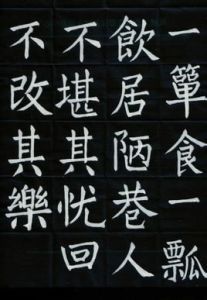 一簞食一瓢
飲居陋巷人
不堪其忧回
不改其樂